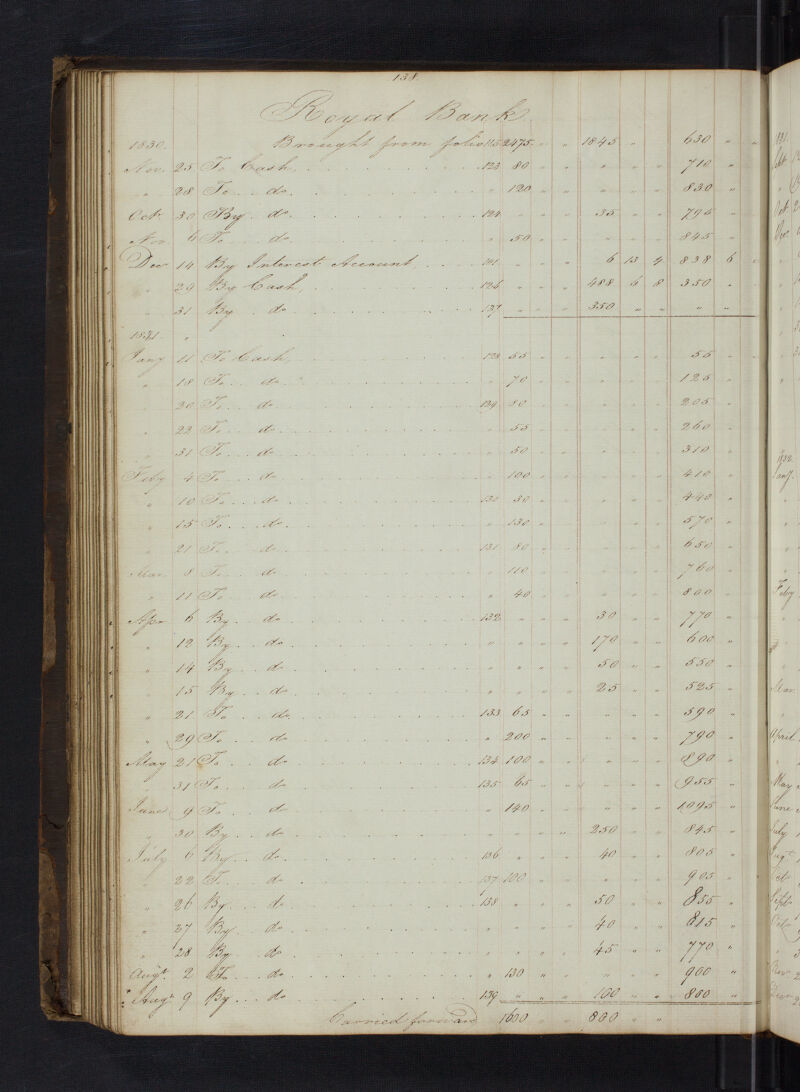 138
Royal Bank
1830. Brought from folio 115 2475 " " 1845 " 630 " "
Nov. 25 To Cash 123 80 " " " " " 710 "
" 28 To do " 120 " " " " " 830 "
Octr. 30 By do 124 " " " 35 " " 795 "
Nov 6 To do " 50 " " " " " 845 "
Decr 14 By Interest Account 141 " " " 6 13 4 838 6 "
" 24 By Cash, 126 " " " 488 6 8 350 "
" 31 By do 137 " " " 350 " " " "
1831 "
Jany 11 To Cash 128 55 " " " " " 55 "
" 18 To do " 70 " " " " " 125 "
" 20 To do 129 80 " " " " " 205 "
" 22 To do " 55 " " " " " 260 "
" 31 To do " 50 " " " " " 310 "
Feby 4 To do " 100 " " " " " 410 "
" 10 To do 130 30 " " " " " 440 "
" 15 To do " 130 " " " " " 570 "
" 21 To do 131 80 " " " " " 650 "
Mar 8 To do " 110 " " " " " 760 "
" 11 To do " 40 " " " " " 800 "
Apr 6 By do 132 " " " 30 " " 770 "
" 12 By do " " " " 170 " " 600 "
" 14 By do " " " " 50 " " 550 "
" 15 By do " " " " 25 " " 525 "
" 21 To do 133 65 " " " " " 590 "
" 29 To do " 200 " " " " " 790 "
May 21 To do 134 100 " " " " " 890 "
" 31 To do 135 65 " " " " " 955 "
June 9 To do " 140 " " " " " 1095 "
" 30 By do " " " " 250 " " 845 "
July 6 By do 136 " " " 40 " " 805 "
" 22 To do 137 100 " " " " " 905 "
" 26 By do 138 " " " 50 " " 855 "
" 27 By do " " " " 40 " " 815 "
" 28 By do " " " " 45 " " 770 "
Augt. 2 To do " 130 " " " " " 900 "
Augt 9 By do 139 " " " 100 " " 800 "
Carried forward 1600 " " 800 " "